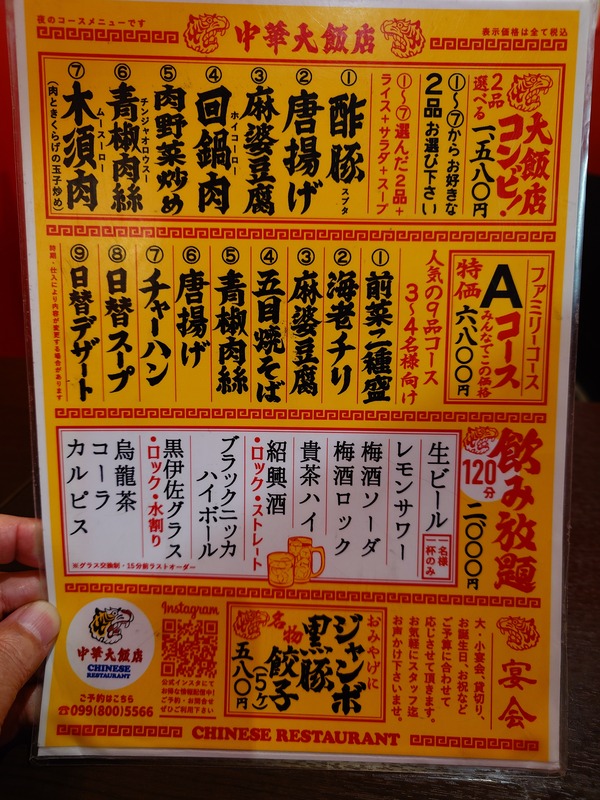 夜のコースメニューです
中華大飯店
表示価格は全て税込
大飯店
コンビ!
2品
選べる
一、五八〇円
①〜⑦からお好きな
2品お選び下さい
①〜⑦選んだ2品+
ライス+サラダ+スープ
①酢豚 スブタ
②唐揚げ
③麻婆豆腐
④回鍋肉 ホイコーロー
⑤肉野菜炒め
⑥青椒肉絲 チンジャオロウスー
⑦木須肉 ムースーロー
(肉ときくらげの玉子炒め)
ファミリーコース
Aコース
みんなでこの価格
特価 六八〇〇円
人気の9品コース
3〜4名様向け
①前菜二種盛
②海老チリ
③麻婆豆腐
④五目焼そば
⑤青椒肉絲
⑥唐揚げ
⑦チャーハン
⑧日替スープ
⑨日替デザート
時期・仕入により内容が変更する場合があります
飲み放題
120分
二、〇〇〇円
生ビール
一名様
一杯のみ
レモンサワー
梅酒ソーダ
梅酒ロック
貴茶ハイ
紹興酒
・ロック・ストレート
ブラックニッカ
ハイボール
黒伊佐グラス
・ロック・水割り
烏龍茶
コーラ
カルピス
※グラス交換制・15分前ラストオーダー
宴会
大・小宴会、貸切り、
お誕生日、お祝など
ご予算に合わせて
応じさせて頂きます。
お気軽にスタッフ迄
お声かけ下さいませ。
おみやげに
名物
ジャンボ
黒豚
餃子
(5ヶ)
五八〇円
Instagram
公式インスタにて
お得な情報配信中!
ご予約・お問合せ
ぜひご利用下さい
中華大飯店
CHINESE
RESTAURANT
ご予約はこちら
☎099(800)5566
CHINESE RESTAURANT